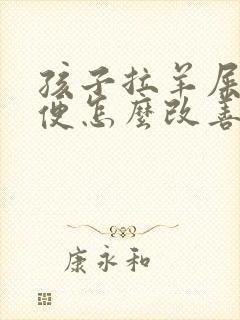 孩子拉羊屎
便怎麼改善
康永和